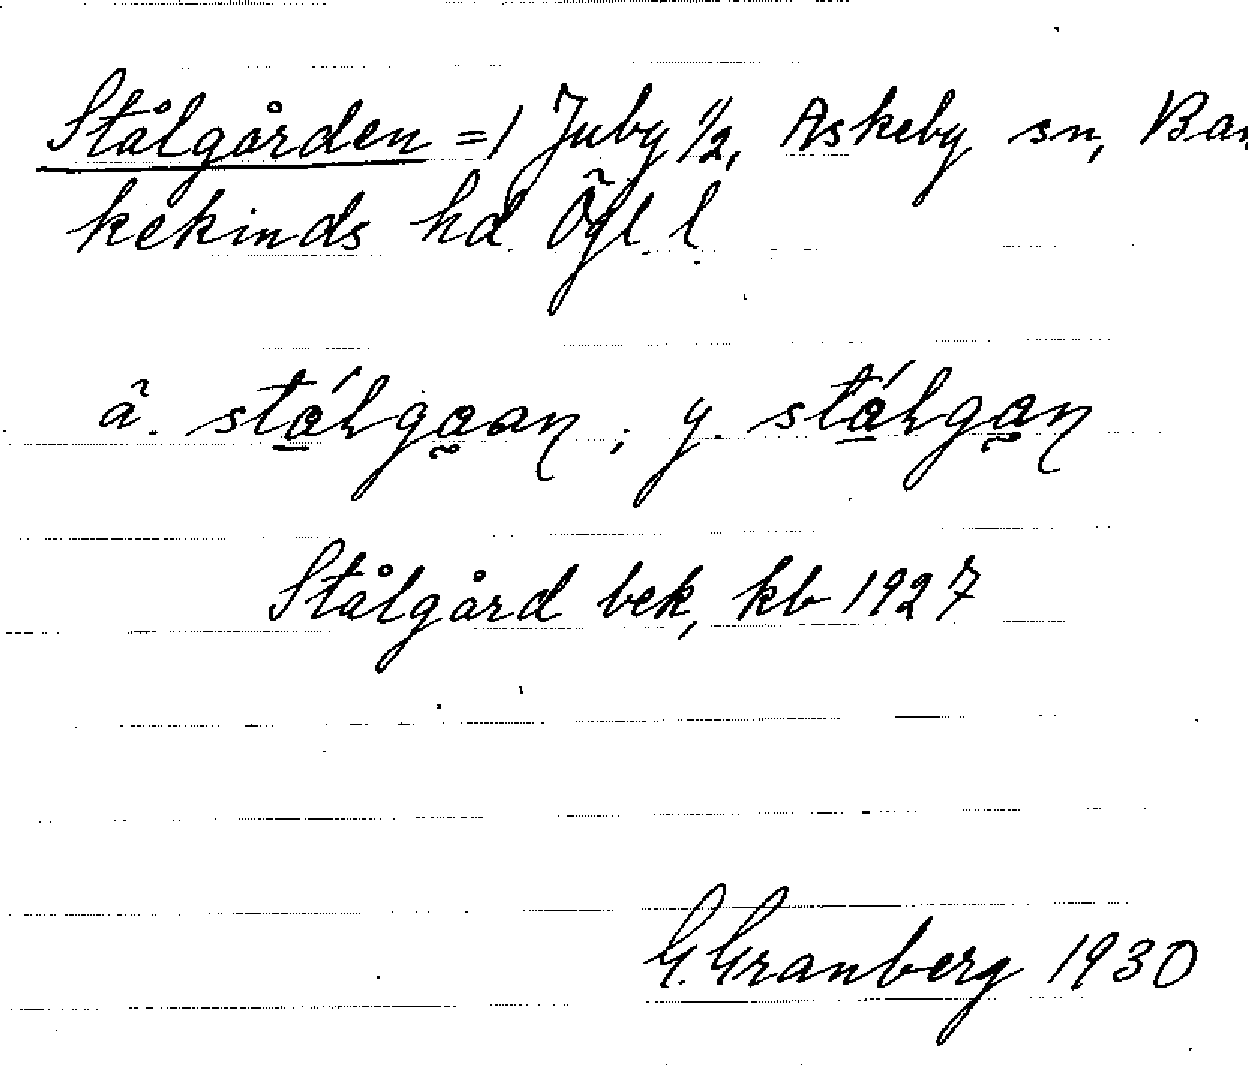 Stålgården = 1 Juby 1/2, Askeby sn, Ban
kekinds hd. Ögl l
ä. stálgaan; y. stálgan
Stålgård bek, kb 1927
G. Granberg 1930